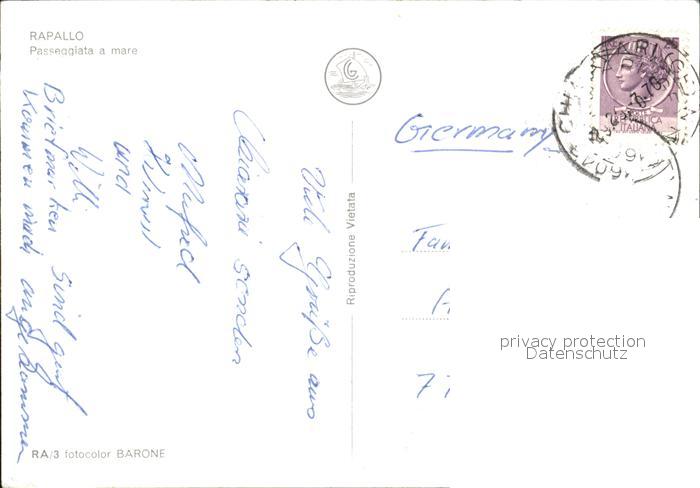 RAPALLO
Passeggiata a mare
G
REPUBBLICA
ITALIANA
Viele Grüße aus
Chiavari senden
Manfred
und
Willi
Briefmarken sind gut
angekommen
Reproduzione Vietata
Germany
Fam
A
7
privacy protection
Datenschutz
RA/3 fotocolor BARONE